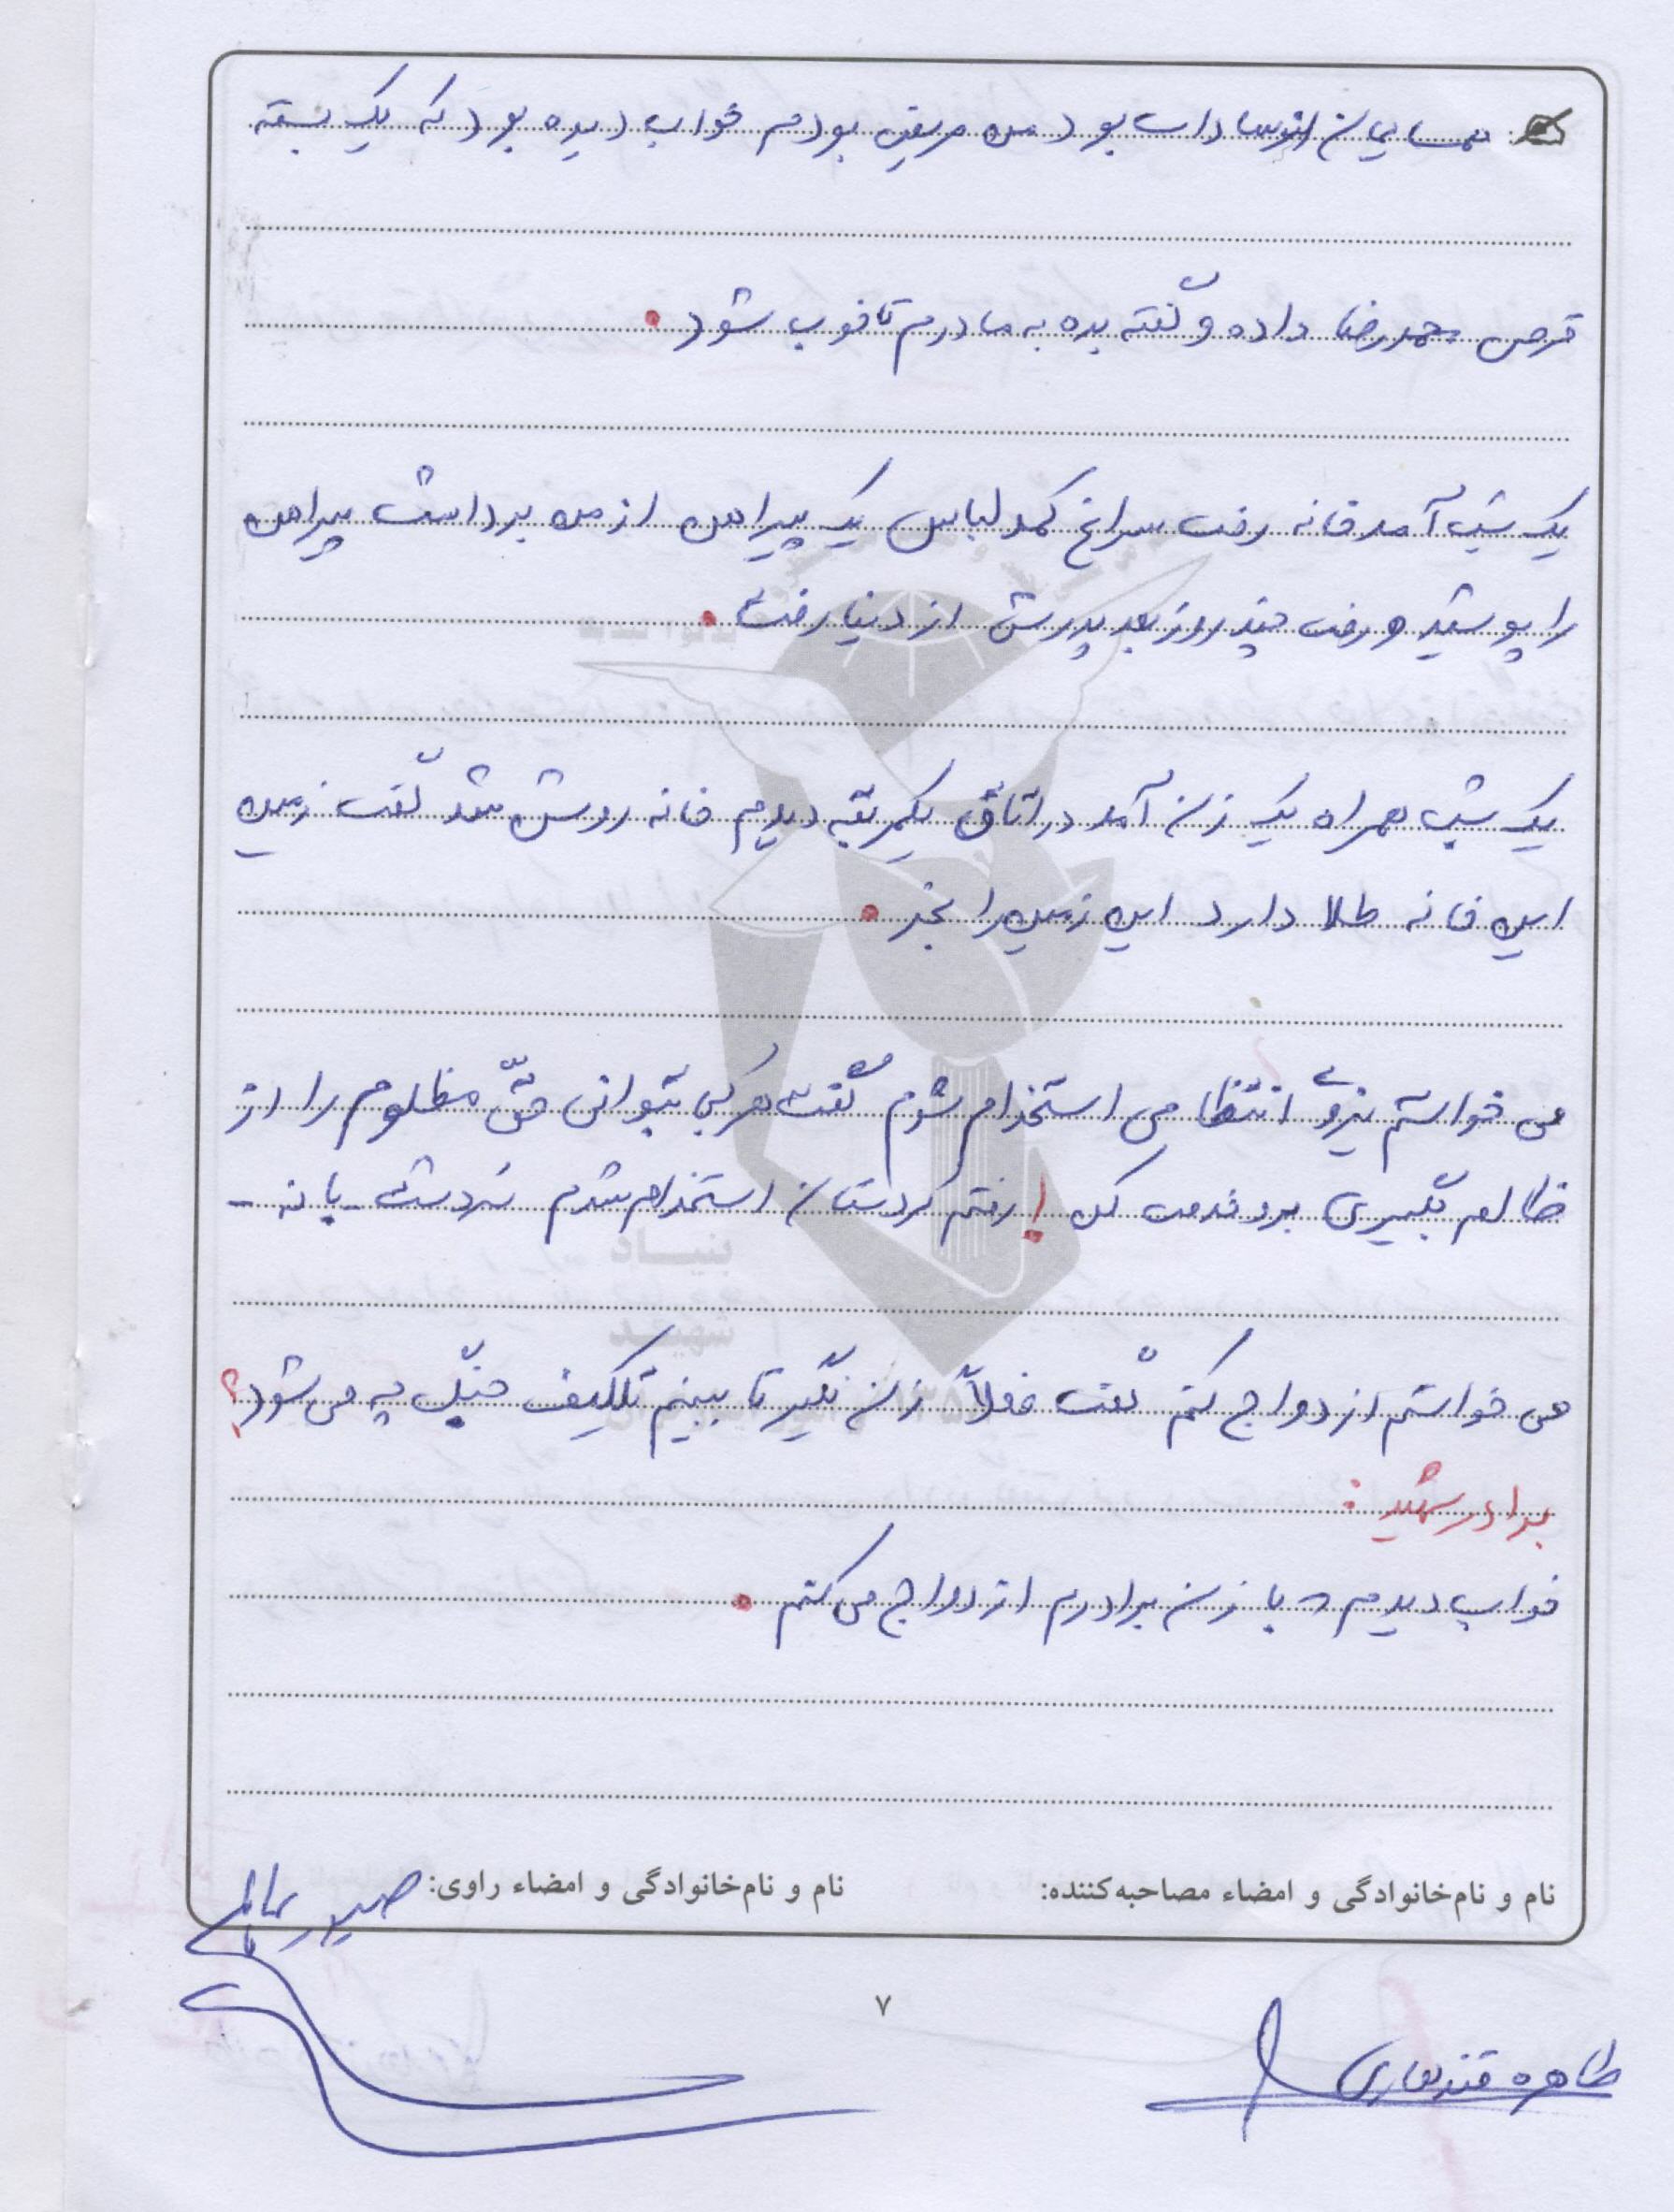 همسایمان از سادات بود من مریض بودم خواب دیده بود که یک بسته
قرص محمدرضا داده و گفته بده به مادرم تا خوب شود.
یک شب آمد خانه رفت سراغ کمد لباس یک پیراهن از من برداشت پیراهن
را پوشید و رفت چند روز بعد پدرش از دنیا رفت.
یک شب همراه یک زن آمد در اتاق یکمرتبه دیدم خانه روشن شد گفت زمین
این خانه طلا دارد این زمین را بخر.
می خواستم نیروی انتظامی استخدام شوم گفت هر کی بتوانی حقّ مظلوم را از
ظالم بگیری برو خدمت کن! رفتم کردستان استخدام شدم سردشت - بانه -
می خواستم ازدواج کنم گفت فعلاً زن نگیر تا ببینم تکلیف جنگ چه می شود؟
برادر شهید:
خواب دیدم با زن برادرم ازدواج می کنم.
نام و نام‌خانوادگی و امضاء مصاحبه‌کننده:
نام و نام‌خانوادگی و امضاء راوی:
طاهره قندهاری
۷
بنیاد
شهید